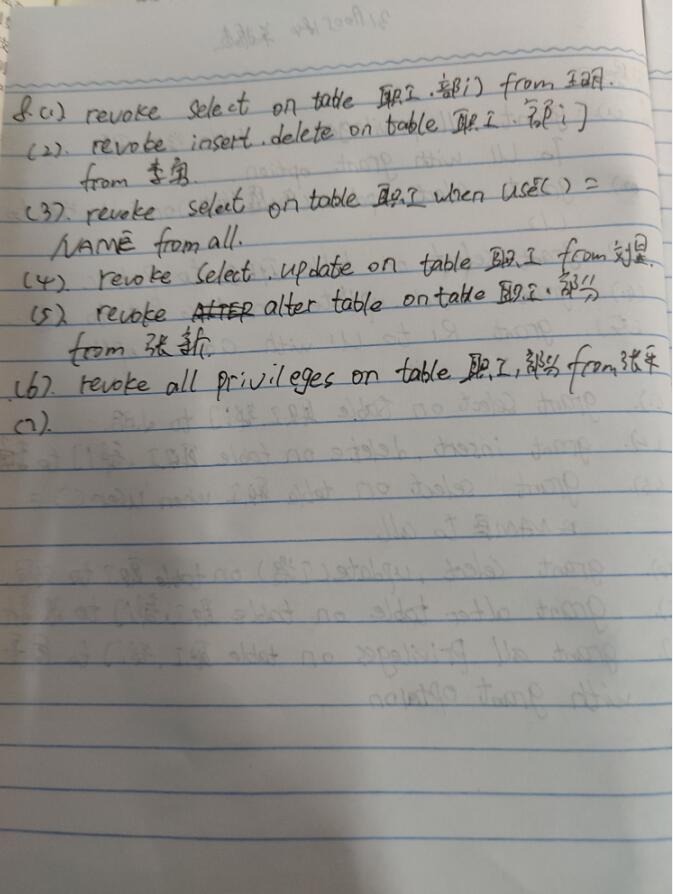 8.(1) revoke select on table 职工.部门 from 王明.
(2). revoke insert.delete on table 职工.部门
from 李勇
(3). revoke select on table 职工 when USE( ) =
NAME from all.
(4). revoke select.update on table 职工 from 刘星.
(5). revoke alter table on table 职工.部分
from 张新.
(6). revoke all privileges on table 职工,部分 from 张平
(7).